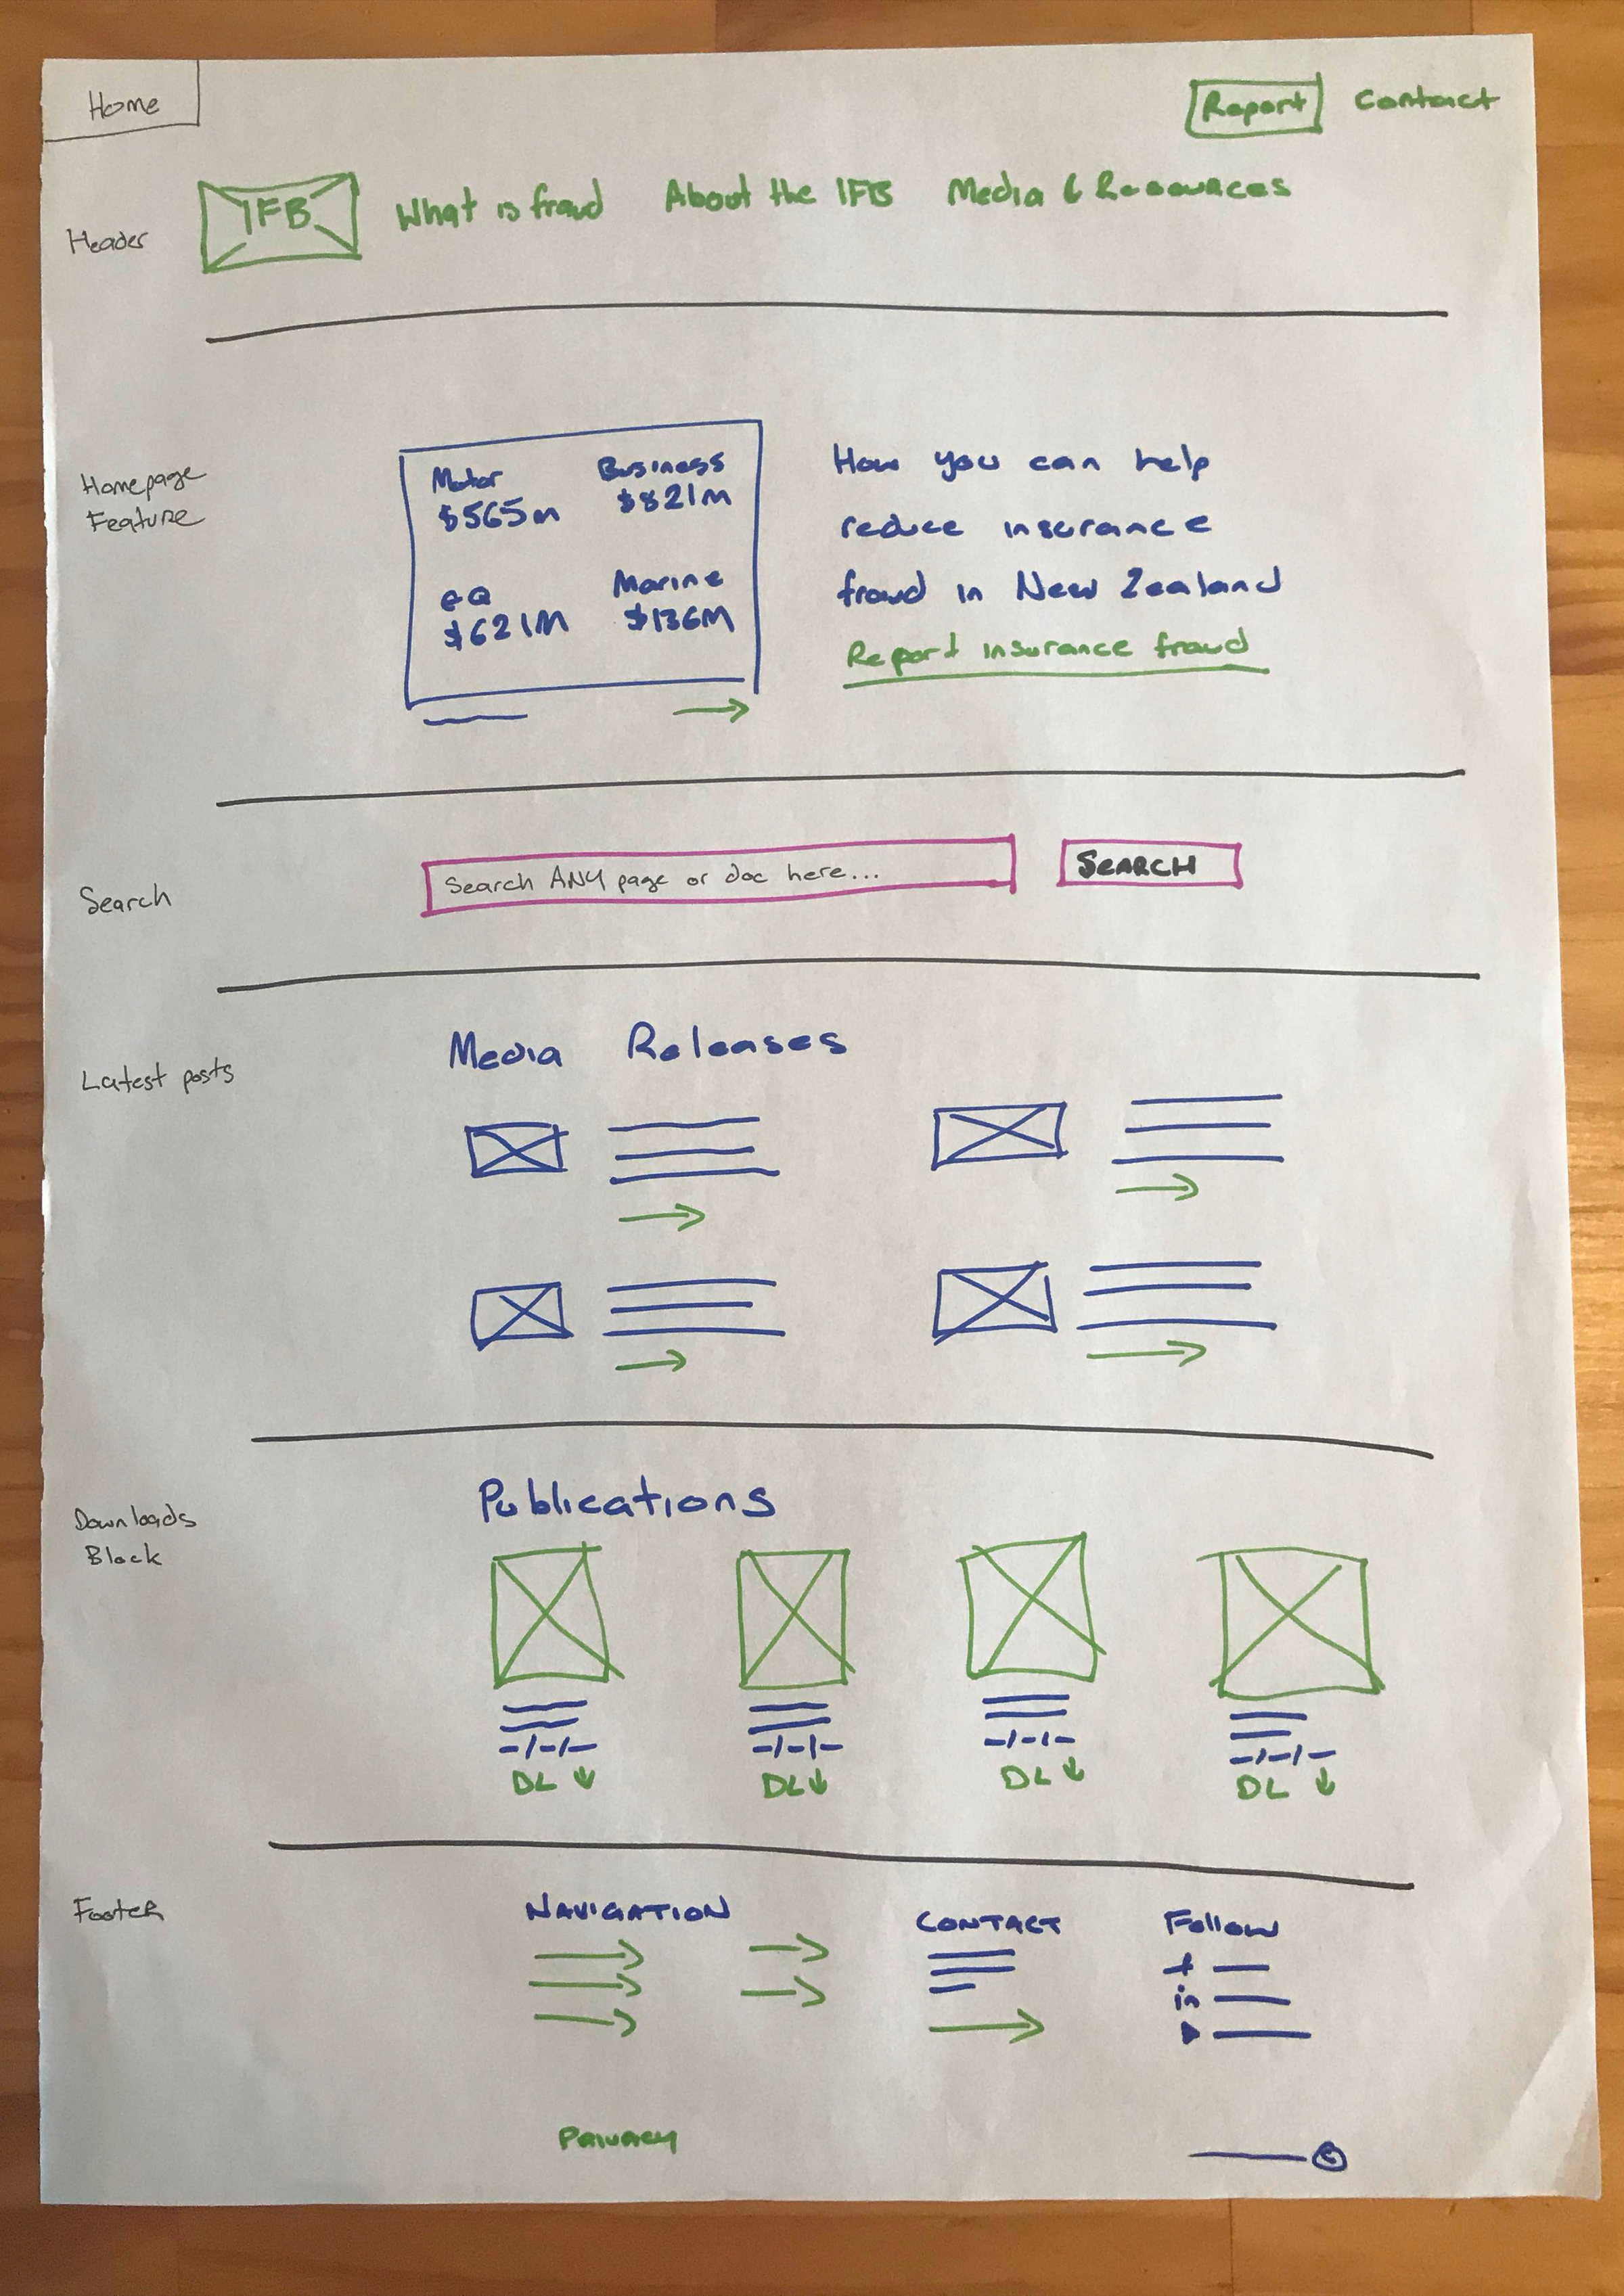 Home
Report Contact
Header
IFB What is fraud About the IFB Media & Resources
Homepage
Feature
Motor Business
$565m $821m
EQ Marine
$621M $136M
How you can help
reduce insurance
fraud in New Zealand
Report insurance fraud
Search
Search ANY page or doc here...
SEARCH
Latest posts
Media Releases
Downloads
Block
Publications
DL DL DL DL
Footer
NAVIGATION CONTACT Follow
f
in
Privacy
©